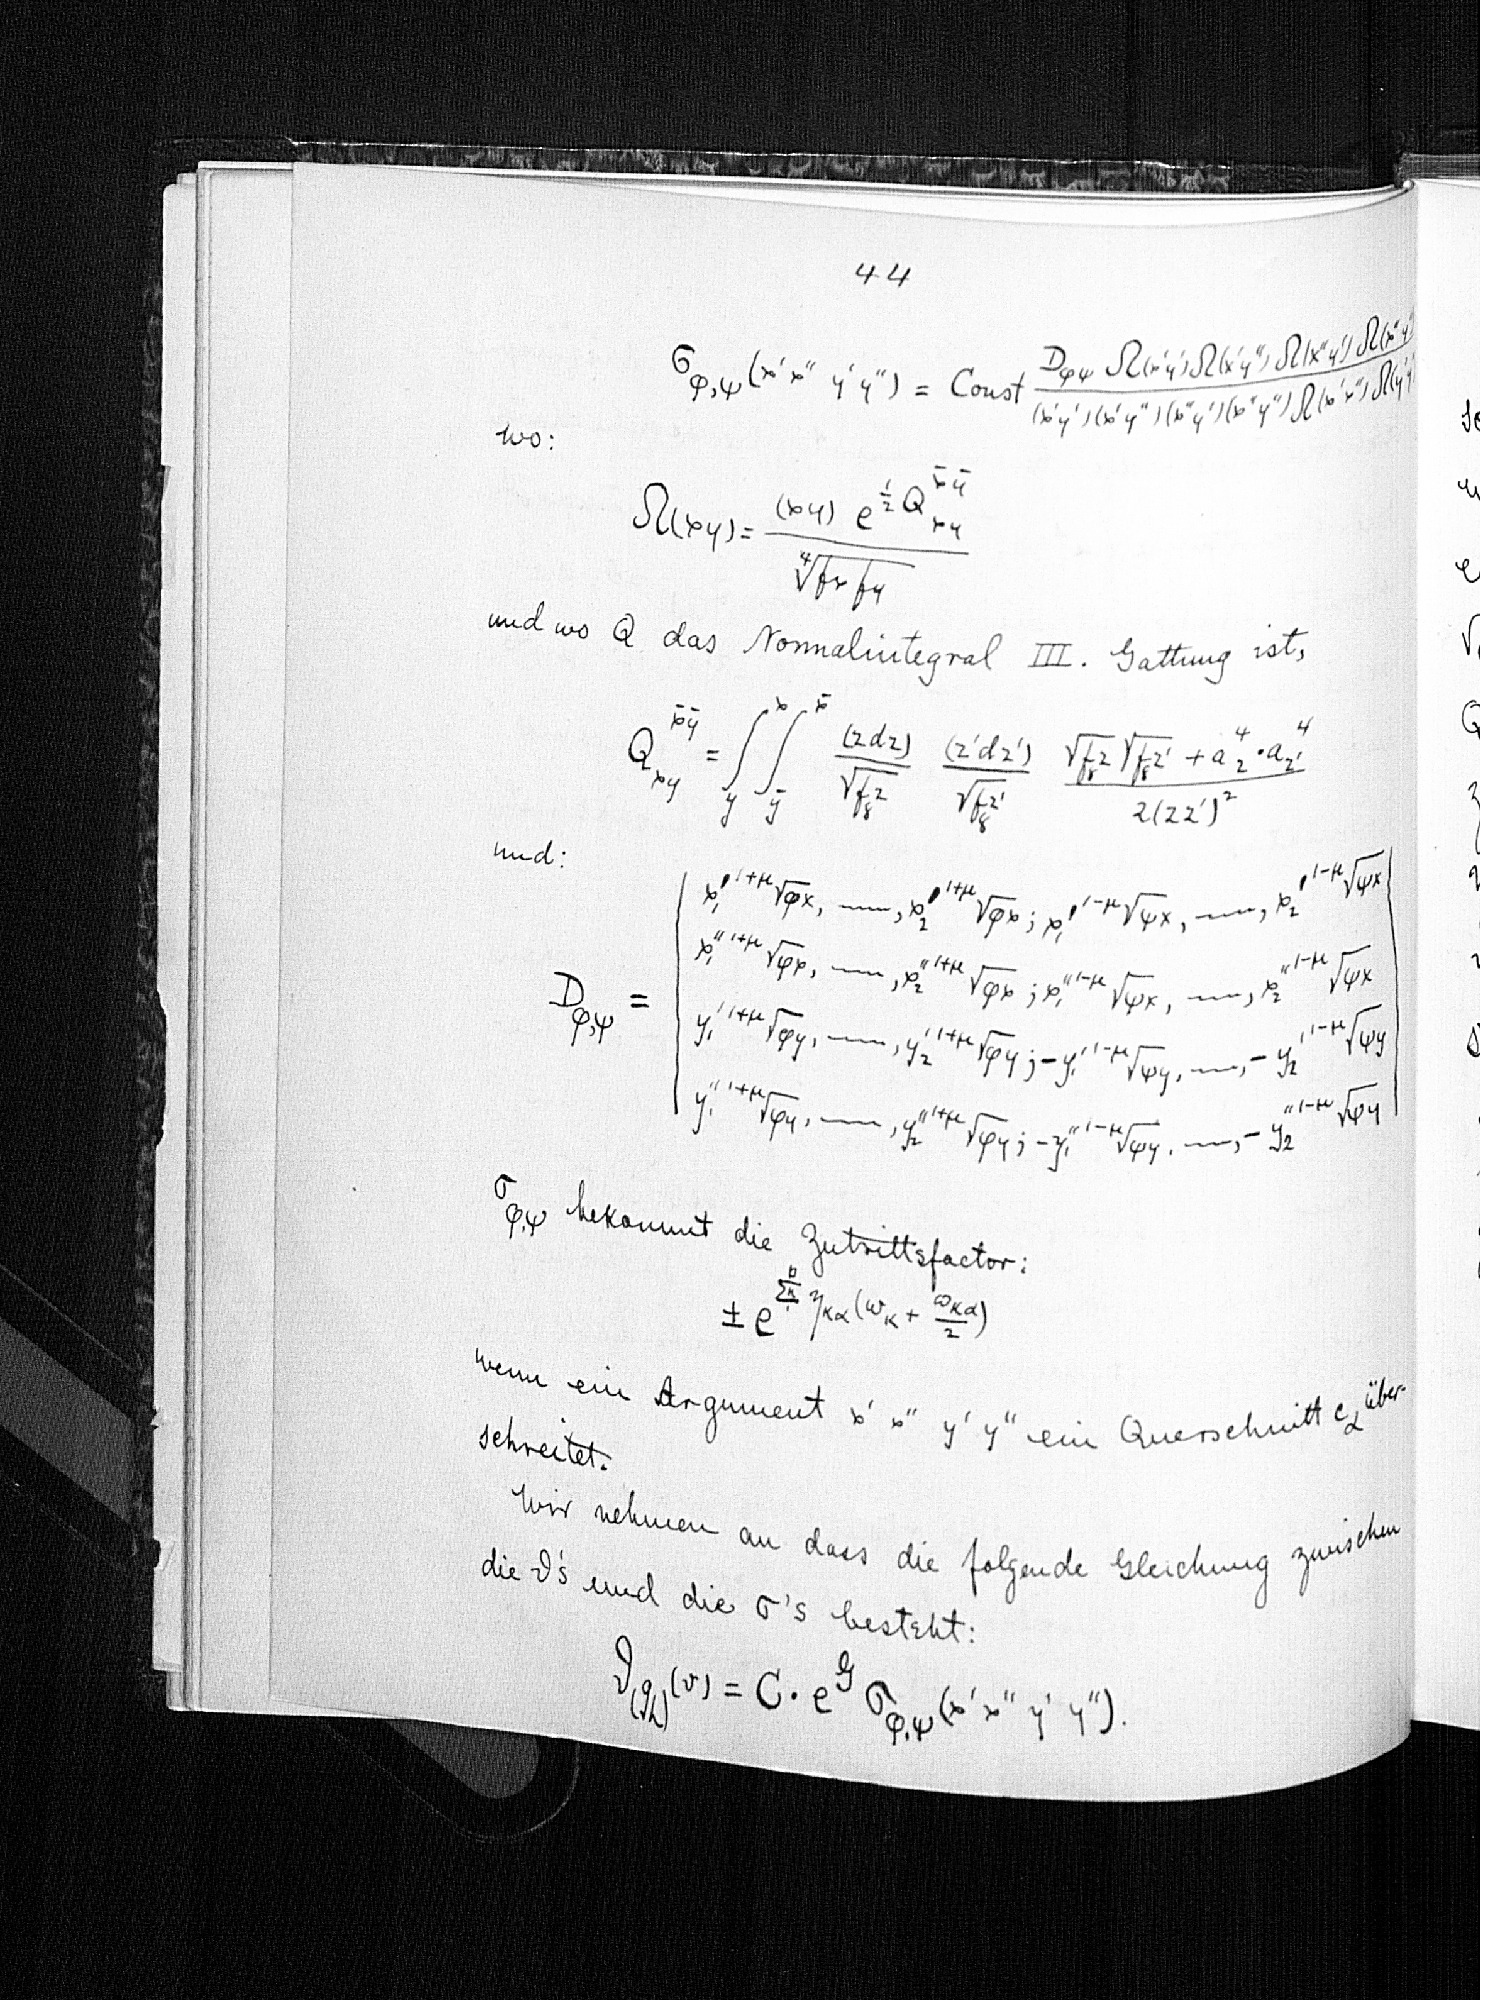 44
σ_{φ,ψ}(x'x'' y'y'') = Const D_{φψ} Ω(x'y') Ω(x'y'') Ω(x''y') Ω(x''y'') / (x'y')(x'y'')(x''y')(x''y'') Ω(x'x'') Ω(y'y
wo:
Ω(xy) = (xy) e^{½ Q_{xy}^{x̄ȳ}} / ∜(fx fy)
und wo Q das Normalintegral III. Gattung ist,
Q_{xy}^{x̄ȳ} = ∫_y^x ∫_ȳ^x̄ (zdz)/√f_8z (z'dz')/√f_8z' (√f_8z √f_8z' + a_z^4 · a_{z'}^4) / 2(zz')²
und:
x_1'^{1+μ}√φx, ——, x_2'^{1+μ}√φx; x_1'^{1-μ}√ψx, ——, x_2'^{1-μ}√ψx
x_1''^{1+μ}√φx, ——, x_2''^{1+μ}√φx; x_1''^{1-μ}√ψx, ——, x_2''^{1-μ}√ψx
D_{φ,ψ} =
y_1'^{1+μ}√φy, ——, y_2'^{1+μ}√φy; -y_1'^{1-μ}√ψy, ——, -y_2'^{1-μ}√ψy
y_1''^{1+μ}√φy, ——, y_2''^{1+μ}√φy; -y_1''^{1-μ}√ψy, ——, -y_2''^{1-μ}√ψy
σ_{φ,ψ} bekommt die Zutrittsfactor:
± e^{Σ_κ η_{κα}(ω_κ + ω_{κα}/2)}
wenn ein Argument x' x'' y' y'' ein Querschnitt c_α über-
schreitet.
Wir nehmen an dass die folgende Gleichung zwischen
die ϑ's und die σ's besteht:
ϑ_{(g,h)}(v) = C · e^G σ_{φ,ψ}(x' x'' y' y'').